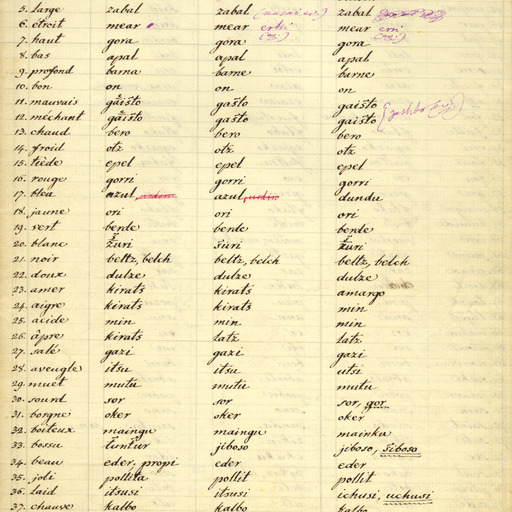 5. large zabal zabal zabal
6. étroit mear mear ertsi mear erri
7. haut gora gora gora
8. bas apal apal apal
9. profond barna barne barne
10. bon on on on
11. mauvais gaišto gašto gaišto
12. méchant gaišto gašto gaišto
13. chaud bero bero bero
14. froid otz otz otz
15. tiède epel epel epel
16. rouge gorri gorri gorri
17. bleu azul, urdin azul, urdin dundu
18. jaune ori ori ori
19. vert berde berde berde
20. blanc žuri šuri žuri
21. noir beltz, belch beltz, belch beltz, belch
22. doux dulze dulze dulze
23. amer kirats kirats amargo
24. aigre kirats kirats min
25. acide min min min
26. âpre kirats latz latz
27. salé gazi gazi gazi
28. aveugle itsu itsu utsi
29. muet mutu mutu mutu
30. sourd sor sor sor, gor
31. borgne oker oker oker
32. boiteux maingu maingu mainku
33. bossu tuntur jiboso jiboso, šiboso
34. beau eder, propi eder eder
35. joli pollita pollit pollit
36. laid itsusi itsusi ichusi, uchusi
37. chauve kalbo kalbo kalbo